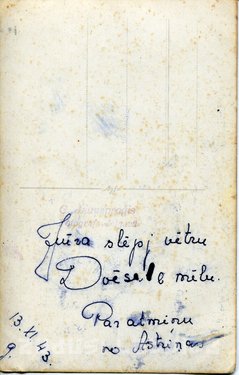 Jūra slēpj vētru
Dvēsele mīlu.
Par atmiņu
no Astrīdas
13 XI 43
g.